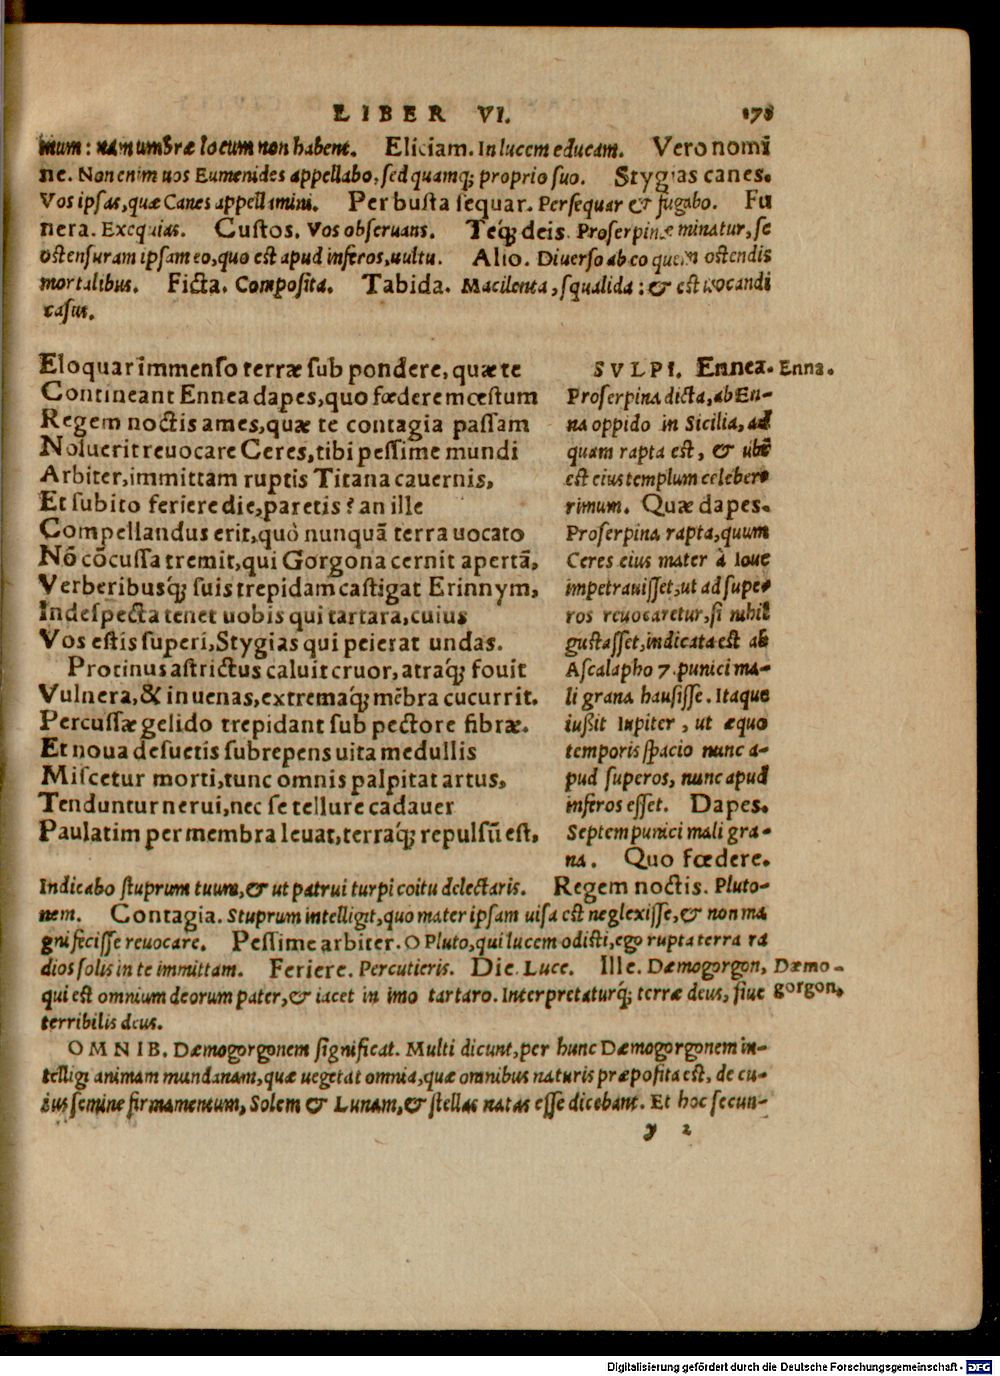 LIBER VI. 178
mum: nam umbræ locum non habent. Eliciam. In lucem educam. Vero nomĩ
ne. Non enim uos Eumenides appellabo, sed quamq; proprio suo. Stygias canes.
Vos ipsas, quæ Canes appellamini. Per busta sequar. Persequar & fugabo. Fu
nera. Exequias. Custos. Vos obseruans. Teq́; deis. Proserpinæ minatur, se
ostensuram ipsam eo, quo est apud inferos, uultu. Alio. Diuerso ab eo quem ostendis
mortalibus. Ficta. Composita. Tabida. Macilenta, squalida: & est uocandi
casus.
Eloquar immenso terræ sub pondere, quæ te
Contineant Ennea dapes, quo fœdere mœstum
Regem noctis ames, quæ te contagia passam
Noluerit reuocare Ceres, tibi pessime mundi
Arbiter, immittam ruptis Titana cauernis,
Et subito feriere die, paretis? an ille
Compellandus erit, quò nunquã terra uocato
Nõ cõcussa tremit, qui Gorgona cernit apertã,
Verberibusq́; suis trepidam castigat Erinnym,
Indespecta tenet uobis qui tartara, cuius
Vos estis superi, Stygias qui peierat undas.
Protinus astrictus caluit cruor, atraq́; fouit
Vulnera, & in uenas, extremaq́; mẽbra cucurrit.
Percussæ gelido trepidant sub pectore fibræ.
Et noua desuetis subrepens uita medullis
Miscetur morti, tunc omnis palpitat artus,
Tenduntur nerui, nec se tellure cadauer
Paulatim per membra leuat, terraq́; repulsũ est,
SVLPI. Ennea. Enna.
Proserpina dicta, ab En-
na oppido in Sicilia, ad
quam rapta est, & ubi
est eius templum celeber-
rimum. Quæ dapes.
Proserpina rapta, quum
Ceres eius mater à Ioue
impetrauisset, ut ad supe-
ros reuocaretur, si nihil
gustasset, indicata est ab
Ascalapho 7. punici ma-
li grana hausisse. Itaque
iussit Iupiter, ut æquo
temporis spacio nunc a-
pud superos, nunc apud
inferos esset. Dapes.
Septem punici mali gra-
na. Quo fœdere.
Indicabo stuprum tuum, & ut patrui turpi coitu delectaris. Regem noctis. Pluto-
nem. Contagia. Stuprum intelligit, quo mater ipsam uisa est neglexisse, & non ma
gni fecisse reuocare. Pessime arbiter. O Pluto, qui lucem odisti, ego rupta terra ra
dios solis in te immittam. Feriere. Percutieris. Die. Luce. Ille. Dæmogorgon, Dæmo-
qui est omnium deorum pater, & iacet in imo tartaro. Interpretaturq́; terræ deus, siue gorgon,
terribilis deus.
OMNIB. Dæmogorgonem significat. Multi dicunt, per hunc Dæmogorgonem in-
telligi animam mundanam, quæ uegetat omnia, quæ omnibus naturis præposita est, de cu-
ius semine firmamentum, Solem & Lunam, & stellas natas esse dicebant. Et hoc secun-
y 2
Digitalisierung gefördert durch die Deutsche Forschungsgemeinschaft - DFG